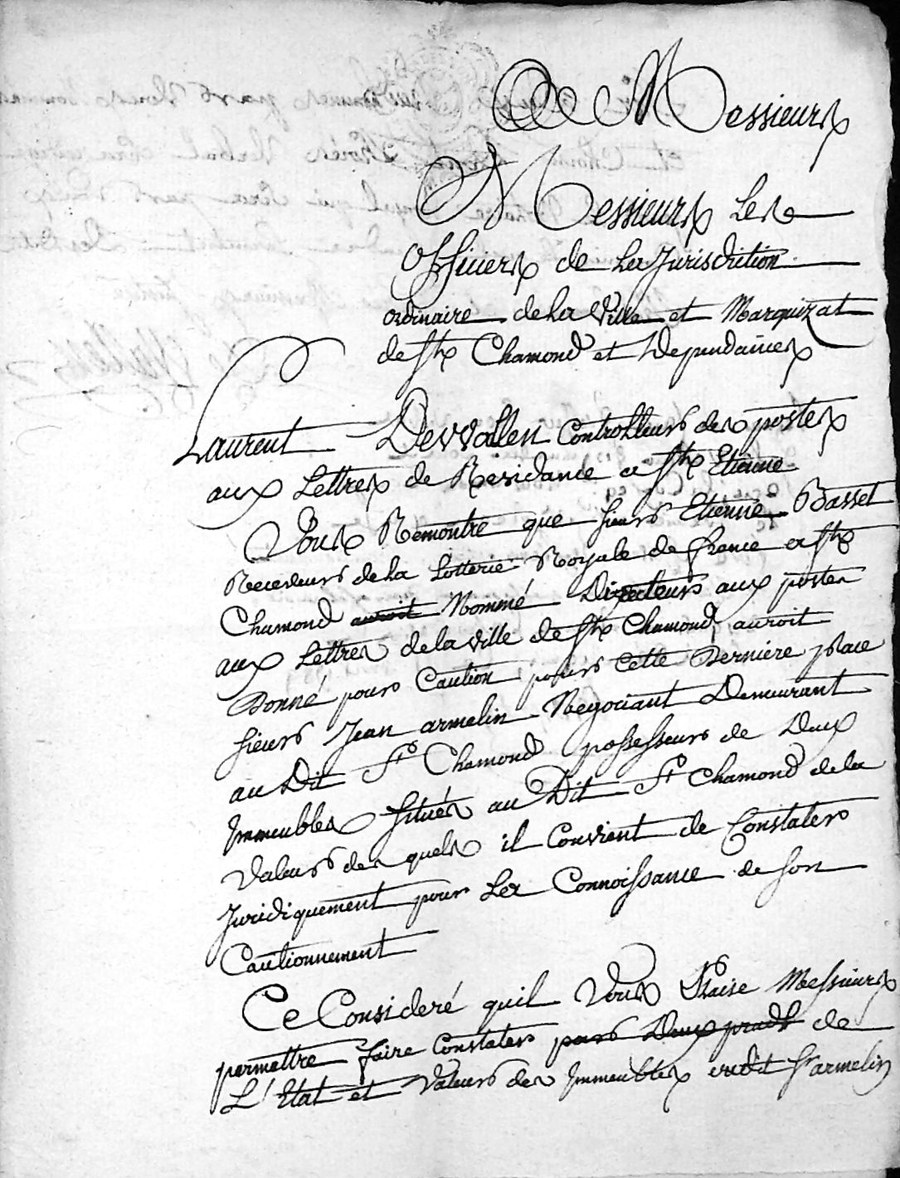 A Messieurs
Messieurs Les
Officiers de La Jurisdiction
ordinaire de La Ville et Marquizat
de St Chamond et Dependances
Laurent Devvallen Controlleur des postes
aux Lettres de Residance a St Etienne
Vous Remontre que sieur Etienne Basset
Receveur de La Lotterie Royale de france a St
Chamond auroit Nommé Directeur aux postes
aux Lettres de la Ville de St Chamond auroit
Donné pour Caution pour Cette Derniere place
sieur Jean armelin Negociant Demeurant
au Dit St Chamond possesseur de Deux
Immeubles situés au Dit St Chamond de la
Valeur des quels il Convient de Constater
Juridiquement pour La Connoissance de son
Cautionnement
Ce Consideré quil Vous Plaise Messieurs
permettre faire Constater par Deux prudh de
L'Etat et Valeur des Immeubles dudit Sr armelin